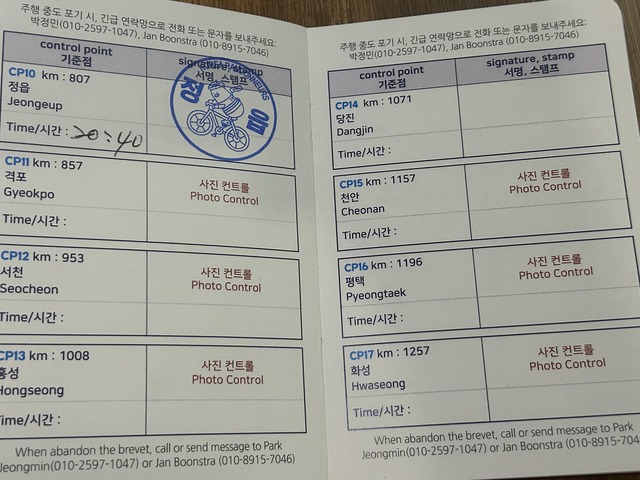 주행 중도 포기 시, 긴급 연락망으로 전화 또는 문자를 보내주세요:
박정민(010-2597-1047), Jan Boonstra (010-8915-7046)
control point
기준점
signature, stamp
서명, 스탬프
CP10 km : 807
정읍
Jeongeup
Time/시간 : 20:40
정 읍
CP11 km : 857
격포
Gyeokpo
Time/시간 :
사진 컨트롤
Photo Control
CP12 km : 953
서천
Seocheon
Time/시간 :
사진 컨트롤
Photo Control
CP13 km : 1008
홍성
Hongseong
Time/시간 :
사진 컨트롤
Photo Control
When abandon the brevet, call or send message to Park
Jeongmin(010-2597-1047) or Jan Boonstra (010-8915-7046)
주행 중도 포기 시, 긴급 연락망으로 전화 또는 문자를 보내주세요:
박정민(010-2597-1047), Jan Boonstra (010-8915-7046)
control point
기준점
signature, stamp
서명, 스탬프
CP14 km : 1071
당진
Dangjin
Time/시간 :
CP15 km : 1157
천안
Cheonan
Time/시간 :
사진 컨트롤
Photo Control
CP16 km : 1196
평택
Pyeongtaek
Time/시간 :
사진 컨트롤
Photo Control
CP17 km : 1257
화성
Hwaseong
Time/시간 :
사진 컨트롤
Photo Control
When abandon the brevet, call or send message to Park
Jeongmin(010-2597-1047) or Jan Boonstra (010-8915-704